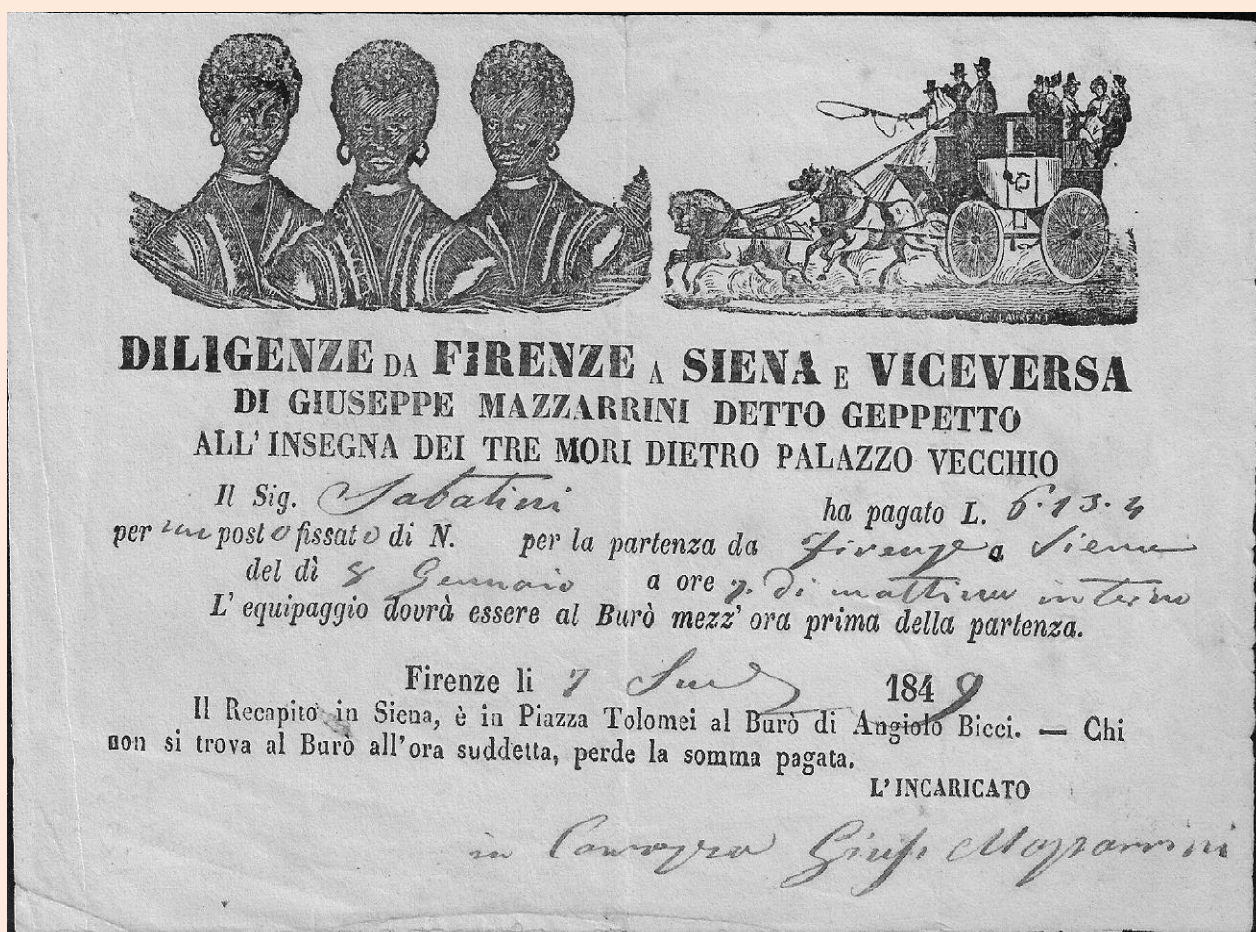 DILIGENZE DA FIRENZE A SIENA E VICEVERSA
DI GIUSEPPE MAZZARRINI DETTO GEPPETTO
ALL' INSEGNA DEI TRE MORI DIETRO PALAZZO VECCHIO
Il Sig. Sabatini ha pagato L. 6.13.4
per un posto fissato di N. per la partenza da Firenze a Siena
del dì 8 Gennaio a ore 7. di mattina interno
L' equipaggio dovrà essere al Burò mezz' ora prima della partenza.
Firenze li 7 1849
Il Recapito in Siena, è in Piazza Tolomei al Burò di Angiolo Bicci. — Chi
non si trova al Burò all'ora suddetta, perde la somma pagata.
L' INCARICATO
in Giuse Mazzarrini